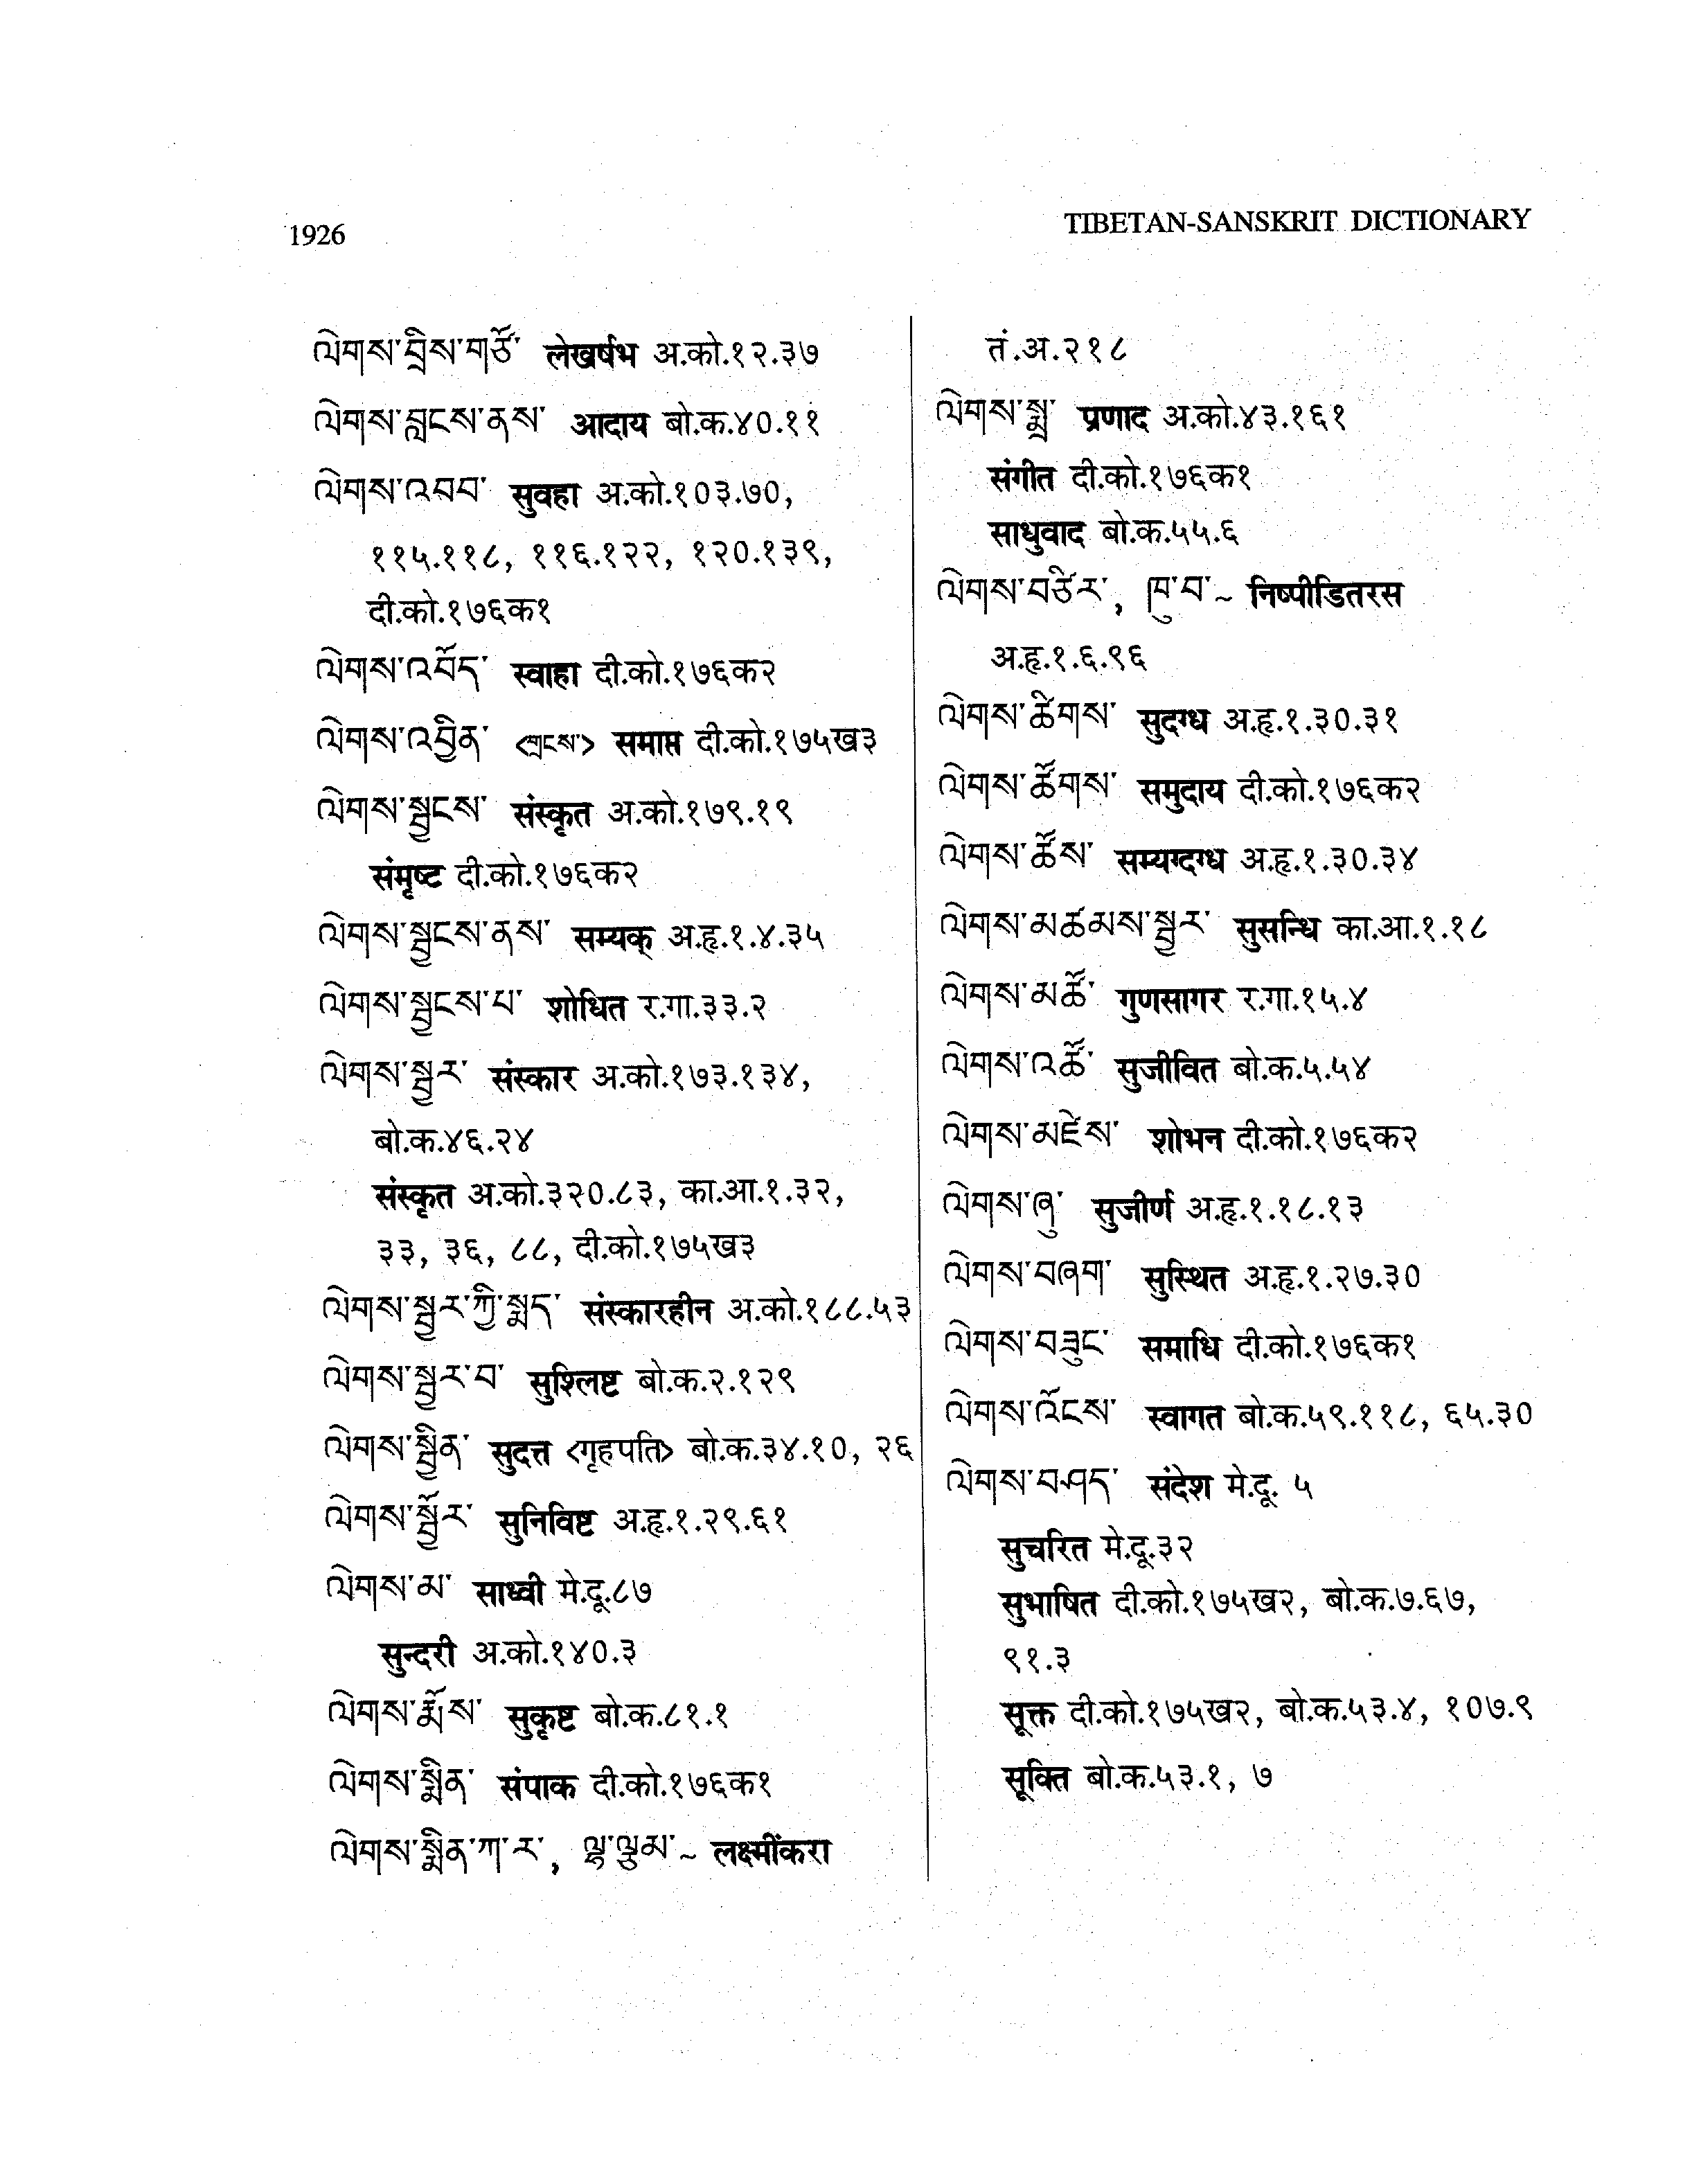 1926
TIBETAN-SANSKRIT DICTIONARY
ལེགས་བྲིས་གཙོ་ लेखर्षभ अ.को.१२.३७
ལེགས་བླངས་ནས་ आदाय बो.क.४०.११
ལེགས་འབབ་ सुवहा अ.को.१०३.७०,
११५.११८, ११६.१२२, १२०.१३९,
दी.को.१७६क१
ལེགས་འབོད་ स्वाहा दी.को.१७६क२
ལེགས་འབྱིན་ <གྲངས་> समाप्त दी.को.१७५ख३
ལེགས་སྦྱངས་ संस्कृत अ.को.१७९.१९
संमृष्ट दी.को.१७६क२
ལེགས་སྦྱངས་ནས་ सम्यक् अ.हृ.१.४.३५
ལེགས་སྦྱངས་པ་ शोधित र.गा.३३.२
ལེགས་སྦྱར་ संस्कार अ.को.१७३.१३४,
बो.क.४६.२४
संस्कृत अ.को.३२०.८३, का.आ.१.३२,
३३, ३६, ८८, दी.को.१७५ख३
ལེགས་སྦྱར་ཀྱི་སྨད་ संस्कारहीन अ.को.१८८.५३
ལེགས་སྦྱར་བ་ सुश्लिष्ट बो.क.२.१२९
ལེགས་སྦྱིན་ सुदत्त <गृहपति> बो.क.३४.१०, २६
ལེགས་སྦྱོར་ सुनिविष्ट अ.हृ.१.२९.६१
ལེགས་མ་ साध्वी मे.दू.८७
सुन्दरी अ.को.१४०.३
ལེགས་རྨོས་ सुकृष्ट बो.क.८१.१
ལེགས་སྨིན་ संपाक दी.को.१७६क१
ལེགས་སྨིན་ཀ་ར་, ལྷ་ལྕམ་~ लक्ष्मींकरा
तं.अ.२१८
ལེགས་སྨྲ་ प्रणाद अ.को.४३.१६१
संगीत दी.को.१७६क१
साधुवाद बो.क.५५.६
ལེགས་བཙིར་, ཁུ་བ་~ निष्पीडितरस
अ.हृ.१.६.९६
ལེགས་ཚིགས་ सुदग्ध अ.हृ.१.३०.३१
ལེགས་ཚོགས་ समुदाय दी.को.१७६क२
ལེགས་ཚོས་ सम्यग्दग्ध अ.हृ.१.३०.३४
ལེགས་མཚམས་སྦྱར་ सुसन्धि का.आ.१.१८
ལེགས་མཚོ་ गुणसागर र.गा.१५.४
ལེགས་འཚོ་ सुजीवित बो.क.५.५४
ལེགས་མཛེས་ शोभन दी.को.१७६क२
ལེགས་ཞུ་ सुजीर्ण अ.हृ.१.१८.१३
ལེགས་བཞག་ सुस्थित अ.हृ.१.२७.३०
ལེགས་བཟུང་ समाधि दी.को.१७६क१
ལེགས་འོངས་ स्वागत बो.क.५९.११८, ६५.३०
ལེགས་བཤད་ संदेश मे.दू. ५
सुचरित मे.दू.३२
सुभाषित दी.को.१७५ख२, बो.क.७.६७,
९१.३
सूक्त दी.को.१७५ख२, बो.क.५३.४, १०७.९
सूक्ति बो.क.५३.१, ७